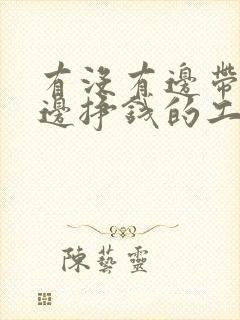 有没有邊帶
邊掙錢的工
陳藝靈